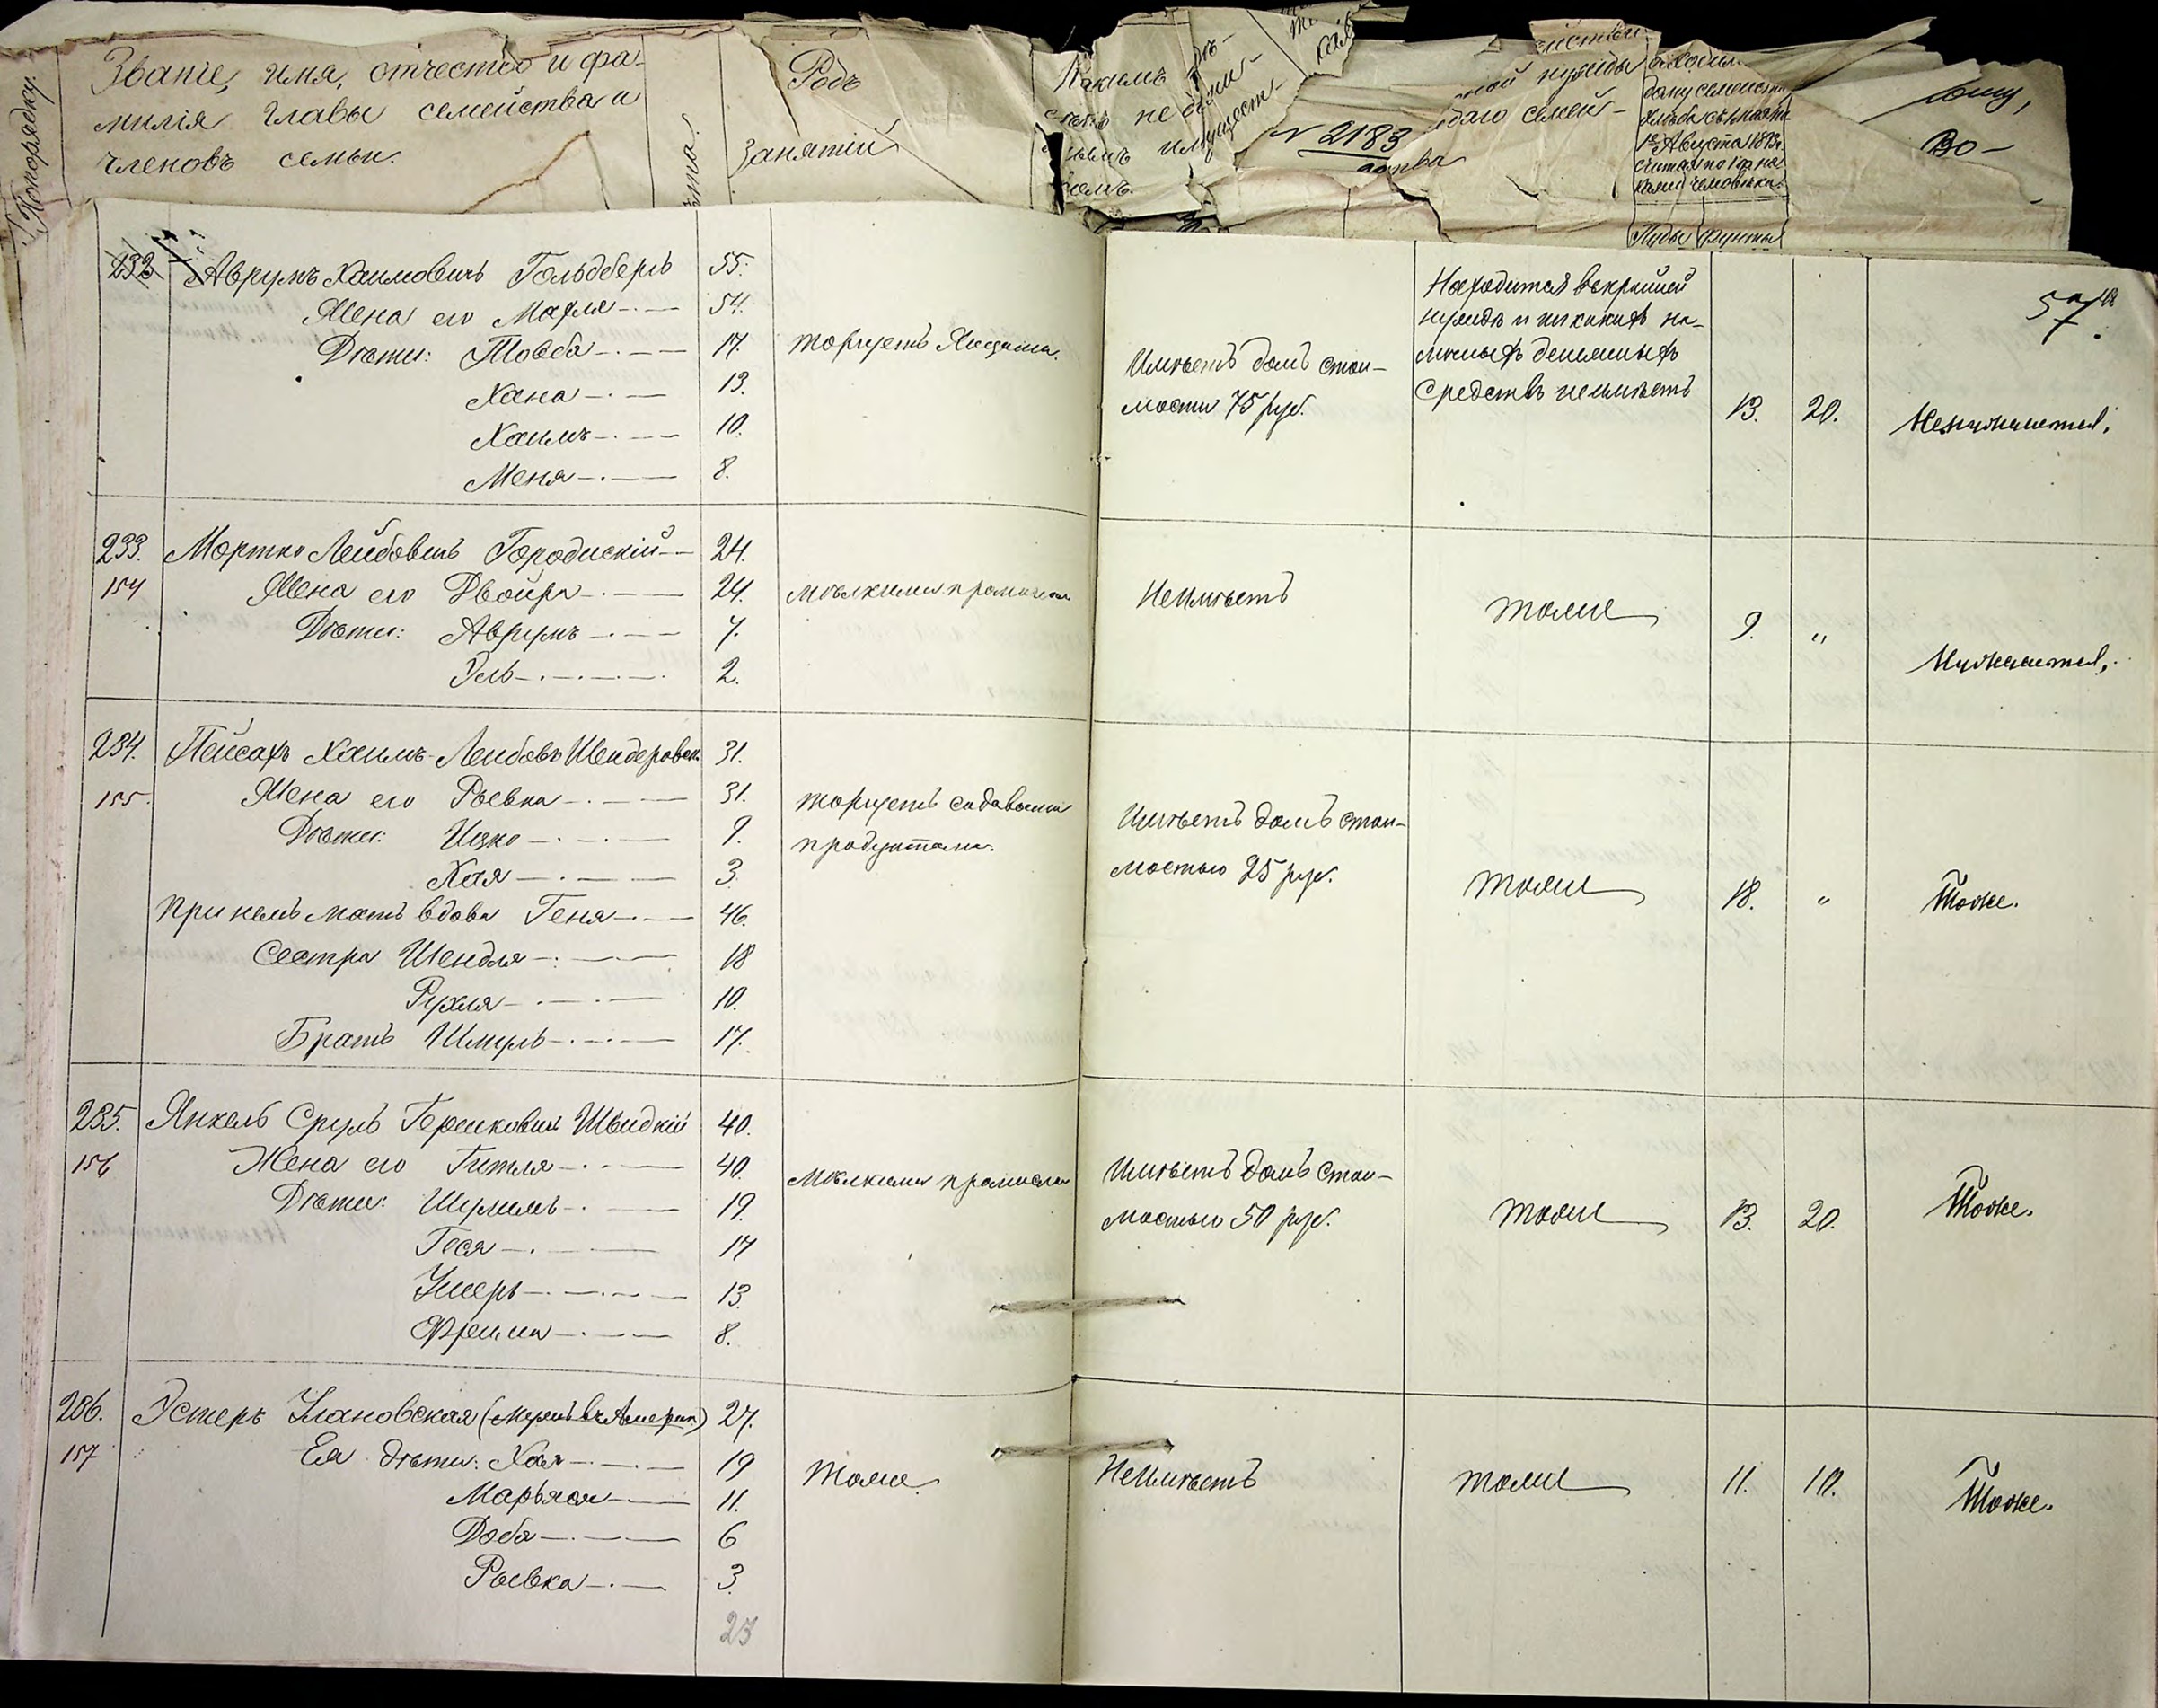 По порядку.
Званіе, имя, отчество и фа-
милія главы семейства и
членовъ семьи.
Родъ
занятій
Какимъ
№ 2183
ной нужды
даго семей-
ства
1е Августа
считая по 1 п. на
Пуды Фунты
Во-
57
232 Аврумъ Хаимовичъ Гольдберъ 55.
Жена его Махля 54.
Дѣти: Товба 17.
Хана 13.
Хаимъ 10.
Меня 8.
торгуетъ Яйцами.
Имѣетъ домъ стои-
мости 75 руб.
Находится въ крайней
нуждѣ и никакихъ на-
личныхъ денежныхъ
средствъ не имѣетъ
13. 20. Ненуждается.
233. Мортко Лейбовичъ Городискій 24.
154 Жена его Двойра 24.
Дѣти: Аврумъ 7.
Эль 2.
мѣлкими промысл
Неимѣетъ
тоже
9. „
Нуждается.
234. Пейсахъ Хаимъ-Лейбовъ Шендерович 31.
155. Жена его Рывка 31.
Дѣти: Ицко 9.
Хая 3
При немъ мать вдова Геня 46.
Сестра Шендля 18
Рухля 10.
Братъ Шмуль 17.
торгуетъ садовыми
продуктами.
Имѣетъ домъ стои-
мостью 25 руб.
тоже
18. „
Тоже.
235. Янкель Сруль Гершковичъ Швидкій 40.
156 Жена его Гитля 40.
Дѣти: Шулимъ 19.
Гося 17
Ушеръ 13.
Фрейма 8.
мѣлкими промысл
Имѣетъ домъ стои-
мостью 50 руб.
тоже
13. 20.
Тоже.
236. Эстеръ Улановская (мужъ въ Америк.) 27.
157 Ея дѣти: Хая 19
Марьяся 11.
Доба 6
Рывка 3.
23
тоже
Неимѣетъ
тоже
11. 10.
Тоже.